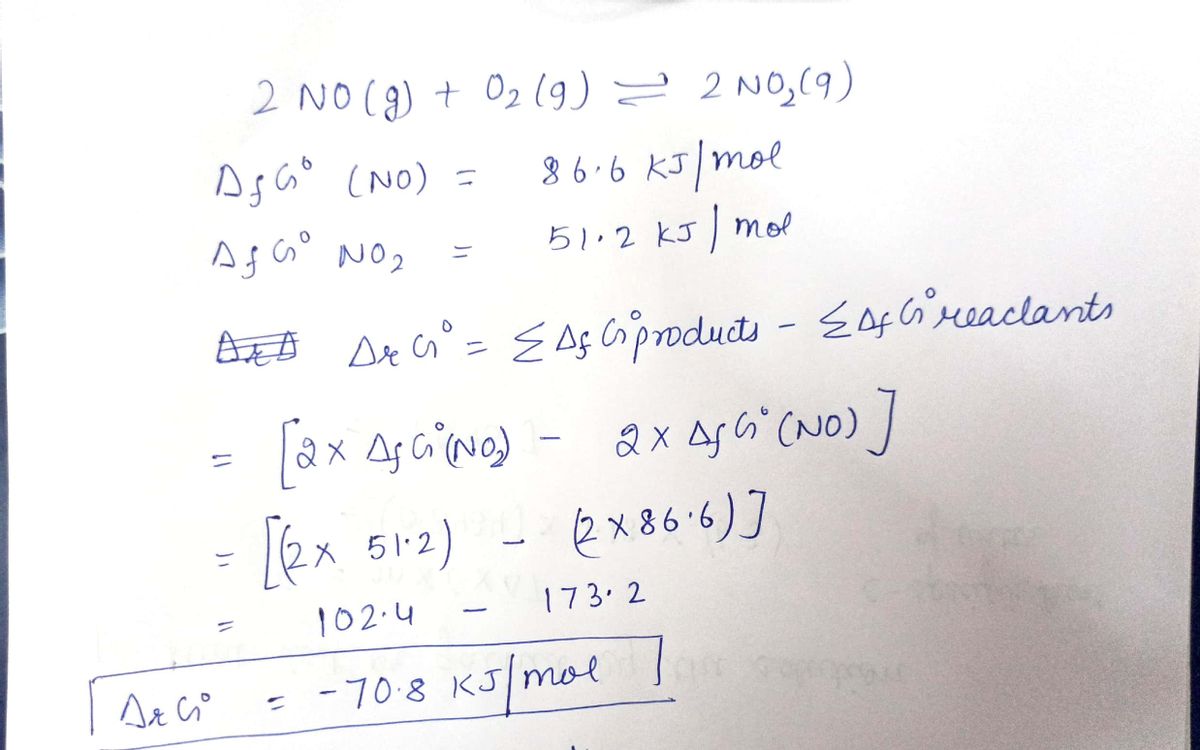 2 NO (g) + O₂ (g) ⇌ 2 NO₂(g)
ΔfG° (NO) = 86.6 KJ/mol
ΔfG° NO₂ = 51.2 KJ/mol
ΔrG° = ΣΔfG°products - ΣΔfG°reactants
= [2 × ΔfG°(NO₂) - 2 × ΔfG° (NO)]
= [(2 × 51.2) - (2 × 86.6)]
= 102.4 - 173.2
ΔrG° = -70.8 KJ/mol